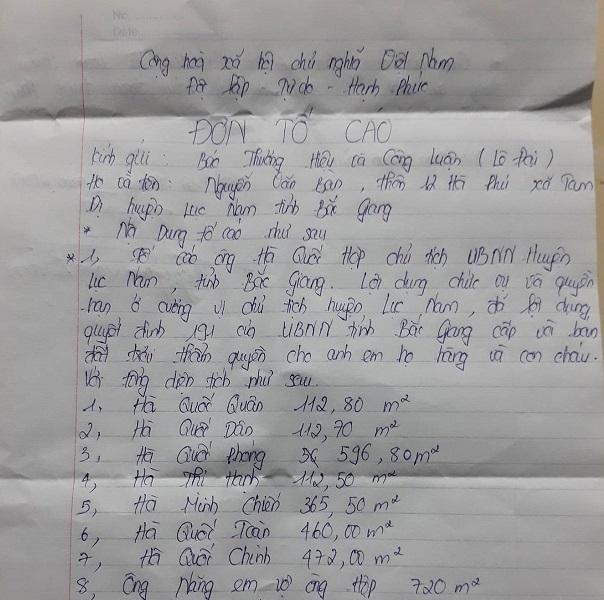 Cộng hoà xã hội chủ nghĩa Việt Nam
Độc lập - Tự do - Hạnh Phúc
ĐƠN TỐ CÁO
Kính gửi : Báo Thương Hiệu và Công Luận
Họ và tên : Nguyễn Văn Bàn, thôn 12 Hà Phú xã Tam
Dị huyện Lục Nam tỉnh Bắc Giang
* Nội Dung tố cáo như sau
* 1, Tố cáo ông Hà Quốc Hợp chủ tịch UBNN Huyện
Lục Nam, tỉnh Bắc Giang. Lợi dụng chức vụ và quyền
hạn ở cương vị chủ tịch huyện Lục Nam, đã lợi dụng
quyết định 191 của UBNN tỉnh Bắc Giang cấp và bán
đất trái thẩm quyền cho anh em họ hàng và con cháu.
Với tổng diện tích như sau.
1, Hà Quốc Quân 112,80 m²
2, Hà Quốc Dân 112,70 m²
3, Hà Quốc Phóng 596,80m²
4, Hà Thị Hạnh 112,50 m²
5, Hà Minh Chiến 365,50 m²
6, Hà Quốc Toàn 460,00 m²
7, Hà Quốc Chinh 472,00 m²
8, Ông Năng em vợ ông Hợp 720 m²